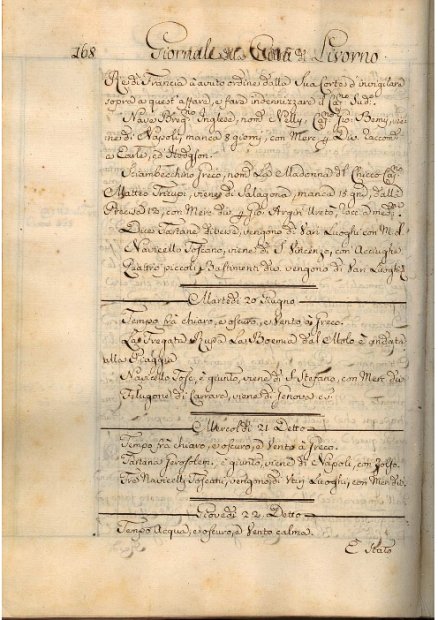 168 Giornale della Città di Livorno.
Re di Francia à avuto ordine dalla Sua Corte d'invigilare
sopra a quest'affare, e fare indennizzare il Capno Sudo.
Nave Inglese, nomta Nelly, Capno Gio: Berry, vie-
ne di Napoli, manca 8 giorni, con Merc. p. Div. raccom.
a Earle, ed Hodgson.
Sciambecchino Greco, nomto La Madonna di Capno
Matteo viene di Salagona, manca 18 gni, dalle
12, con Merc. div. p. Gio: raccomdo.
Dieci Tartane vengono di Vari Luoghi con M. d.
Navicello Toscano, viene di S. Vincenzo, con Acciughe
Quattro piccoli Bastimenti div. vengono di Vari Luoghi
Martedì 20 Giugno
Tempo frà chiaro, e oscuro, e Vento à Greco.
La Fregata Russa La Boemia dal Molo è andata
alla Piaggia
Navicello Tosc. è giunto, viene di S. Stefano, con Merc. div.
Filugone di Carrara, viene di Genova
Mercoldì 21 Detto
Tempo frà chiaro, e oscuro, e Vento à Greco.
Tartana è giunto, viene di Napoli, con Zolfo.
Tre Navicelli Toscani, vengono, di Varj Luoghi, con Merc. div.
Giovedì 22 Detto
Tempo Acqua, e oscuro, e Vento calma.
E Stato